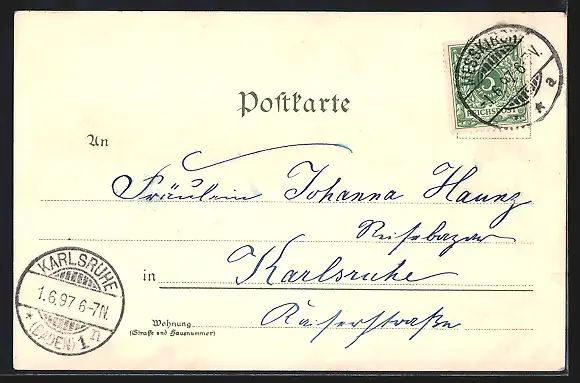 MESSKIRCH
1.6.97.6-7N.
* a
5
REICHSPOST
Postkarte
An
Fräulein Johanna Haunz
Reisebazar
in Karlsruhe
Kaiserstraße
Wohnung
(Straße und Hausnummer)
KARLSRUHE
1.6.97 6-7N.
* (BADEN) 1 n